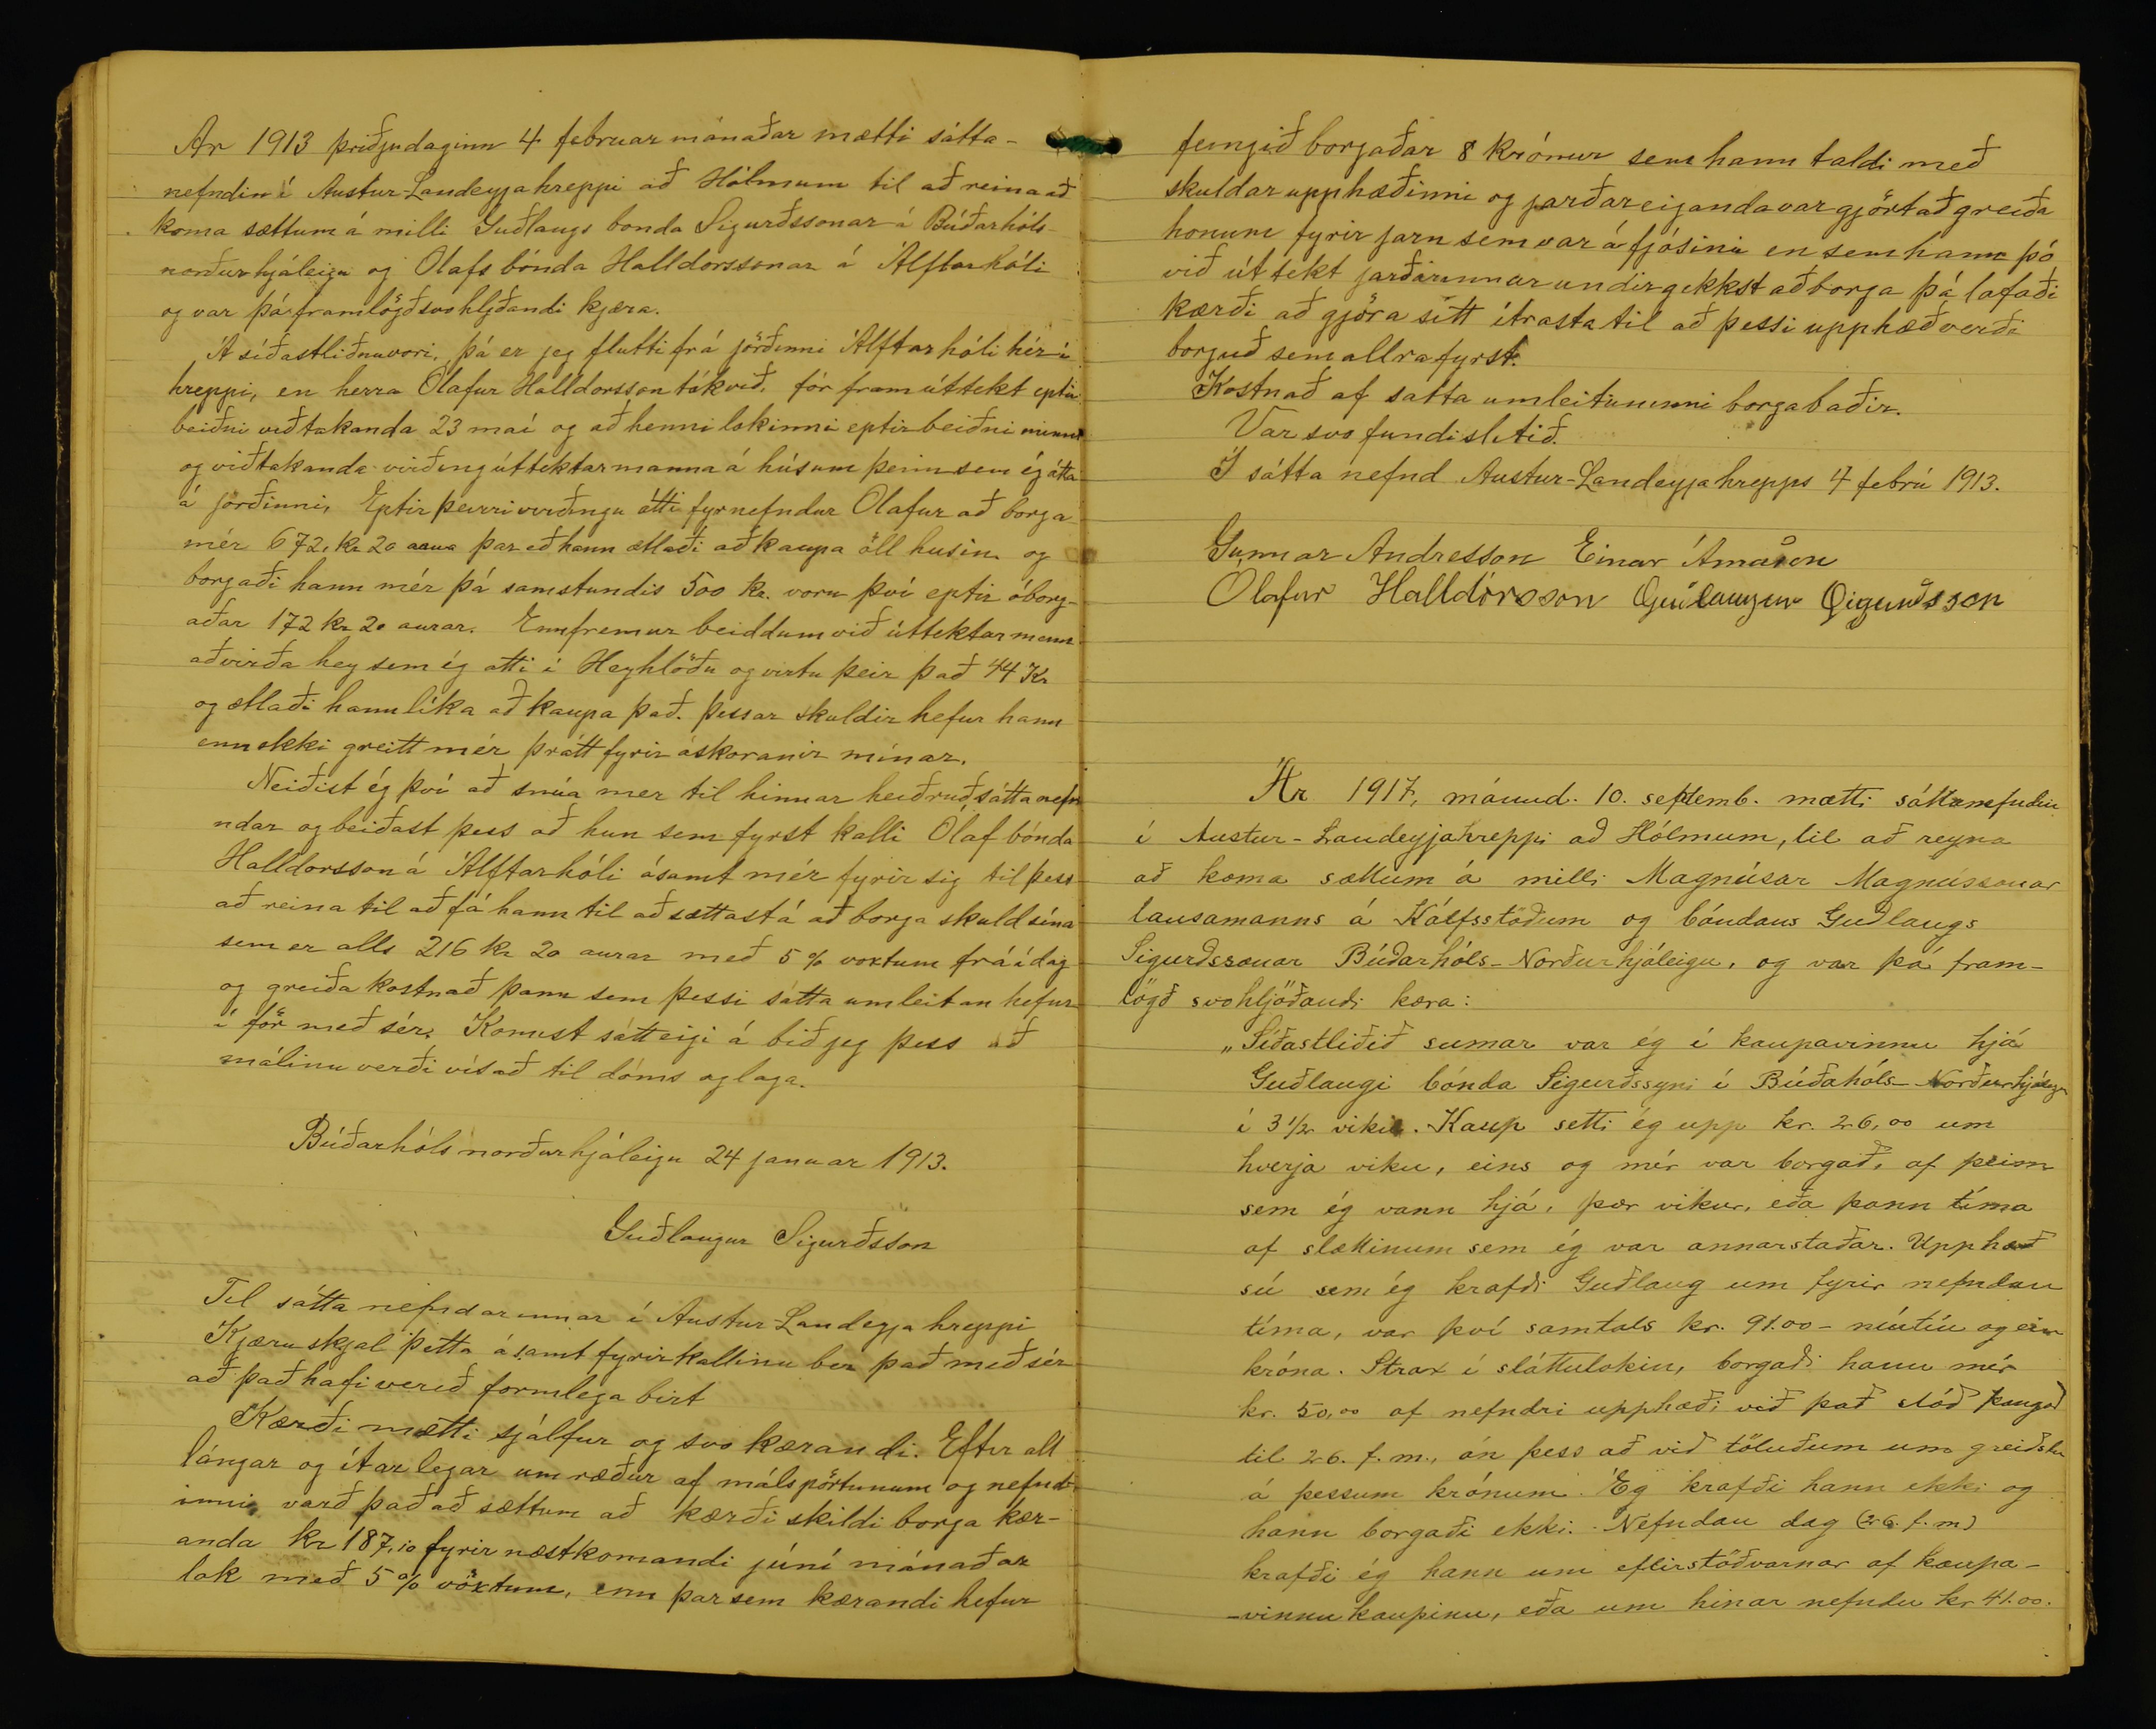 Ar 1913 þriðjudaginn 4 februar mánaðar mætti sátta-
nefndin í Austur-Landeyjahreppi að Hólmum til að reina að
koma sættum á milli Guðlaugs bonda Sigurðssonar á Búðarhóls-
norðurhjáleigu og Olafs bónda Halldorssonar á Álftarhóli
og var þá framlögð svohljðandi kjæra.
Á síðastliðnu vori, þá er jeg flutti frá jörðinni Álftarhóli hér í
hreppi, en herra Ólafur Halldorsson tók við, fór fram úttekt eptir
beiðni viðtakanda 23 maí og að henni lokinni eptir beiðni minni
og viðtakanda virðing úttektarmanna á húsum þeim sem ég átta
á jörðinni, Eptir þeirri virðingu átti fyrnefndur Olafur að borga
mér 672, kr 20 aura þar eð hann ætlaði að kaupa öll husin og
borgaði hann mér þá samstundis 500 kr. voru því eptir óborg-
aðar 172 kr 20 aurar. Ennfremur beiddum við úttektarmenn
að virða hey sem ég atti í Heyhlöðu og virtu þeir það 44 Kr
og ætlaði hann líka að kaupa það. þessar skuldir hefur hann
enn ekki greitt mér þrátt fyrir áskoranir mínar.
Neiðist ég því að snúa mer til hinnar heiðruð sátta nefn
ndar og beiðast þess að hun sem fyrst kalli Olaf bónda
Halldorsson á Álftarhóli ásamt mér fyrir sig til þess
að reina til að fá hann til að sættast á að borga skuld sína
sem er alls 216 kr 20 aurar með 5 % voxtum frá í dag
og greiða kostnað þann sem þessi sátta umleitan hefur
í för með sér. Komist sátt eigi á bið jeg þess að
málinu verði vísað til dóms og laga.
Búðarhóls norðurhjáleigu 24 januar 1913.
Guðlaugur Sigurðsson
Til sátta nefndarinnar í Austur-Landeyja hreppi
Kjæru skjal þetta ásamt fyrirkallinu ber það með sér
að það hafi verið formlega birt
Kærði mætti sjálfur og svo kærandi. Eftir allt
lángar og ítarlegar umræður af málspörtunum og nefnd-
inni varð það að sættum að kærði skildi borga kær-
anda kr 187,10 fyrir næstkomandi júní mánaðar
lok með 5 % vöxtum, enn þar sem kærandi hefur
feingið borgaðar 8 krónur sem hann taldi með
skuldar upphæðinni og jarðareiganda var gjört að greiða
honum fyrir jarn sem var á fjósinu en sem hann þó
við úttekt jarðarinnar undirgekkst að borga þá lafaði
kærði að gjöra sitt ítrasta til að þessi upphæð verði
borguð sem allra fyrst.
Kostnað af satta umleituninni borga baðir.
Var svo fundi slitið.
Í sátta nefnd Austur-Landeyjahrepps 4 febrú 1913.
Gunnar Andresson Einar Árnason
Ólafur Halldórsson Guðlaugur Sigurðsson
Ár 1917, mánud. 10. septemb. mætti sáttanefndin
í Austur-Landeyjahreppi að Hólmum, til að reyna
að koma sættum á milli Magnúsar Magnússonar
lausamanns á Kálfsstöðum og bóndans Guðlaugs
Sigurðssonar Búðarhóls-Norðurhjáleigu, og var þá fram-
lögð svohljóðandi kæra:
„Síðastliðið sumar var ég í kaupavinnu hjá
Guðlaugi bónda Sigurðssyni í Búðahóls-Norðurhjáleigu
í 3 1/2 viku. Kaup setti ég upp kr. 26,00 um
hverja viku, eins og mér var borgað, af þeim
sem ég vann hjá, þær vikur, eða þann tíma
af slættinum sem ég var annarstaðar. Upphæð
sú sem ég krafði Guðlaug um fyrir nefndan
tíma, var því samtals kr. 91.00 - níutíu og ein
króna. Strax í sláttulokin, borgaði hann mér
kr. 50,00 af nefndri upphæð; við það stóð þangað
til 26. f.m., án þess að við töluðum um greiðslu
á þessum krónum. Ég krafði hann ekki og
hann borgaði ekki. Nefndan dag (26. f.m)
krafði ég hann um eftirstöðvarnar af kaupa-
-vinnukaupinu, eða um hinar nefndu kr 41.00.